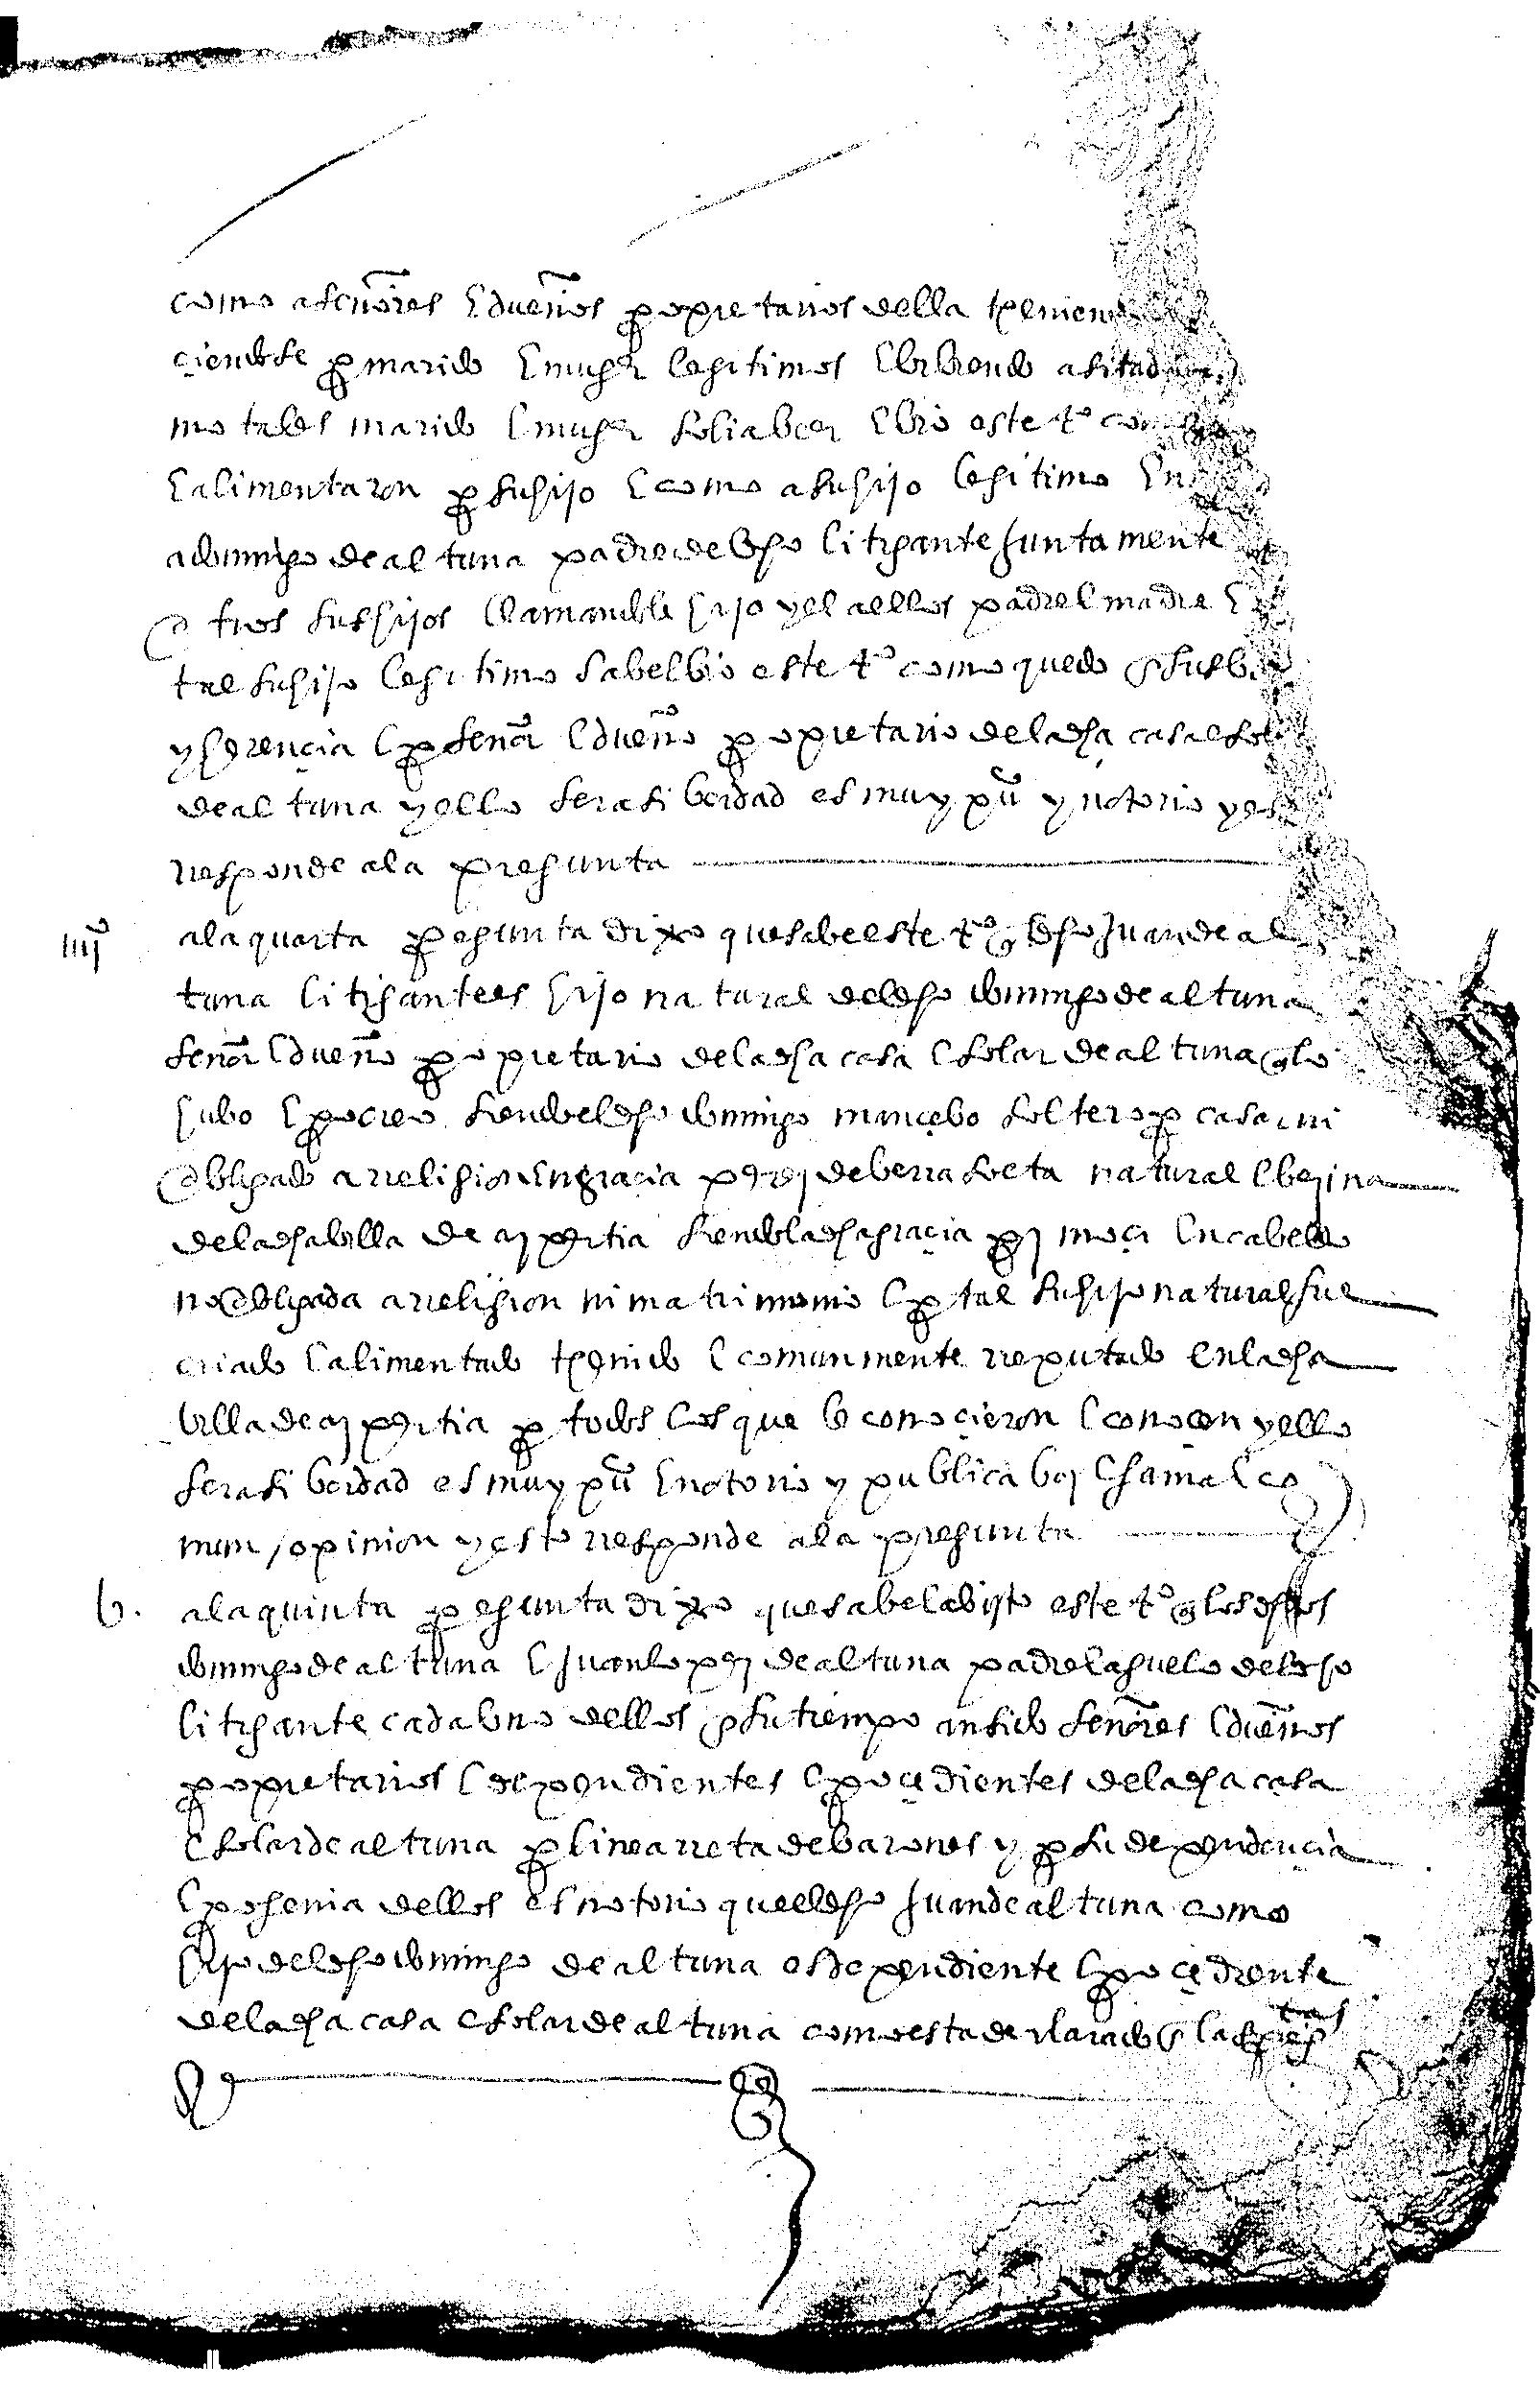 como a señores E dueños propietarios della teniend
çiendose por marido E muger legitimos E bibiendo a fitad
mo tales marido E muger solia ber E bio este tº com
E alimentaron por su hijo E como a su hijo legitimo En
a domingo de altuna padre del dho litigante juntamente
otros sus hijos llamandole hijo y el a ellos padre E madre E
tal su hijo legitimo sabe E bio este tº como quedo en sus b
y herençia E por señor E dueño propietario de la dha casa E sol
de altuna y ello sera si berdad es muy puº y notorio y es
rresponde a la pregunta
iiijº a la quarta pregunta dixo que sabe este tº que el dho Juan de al
tuna litigante es hijo natural del dho domingo de altuna
señor E dueño propietario de la dha casa E solar de altuna que lo
hubo E procreo siendo el dho domingo mançebo soltero por casar ni
obligado a rreligion En graçia perez de berrasoeta natural E bezina
de la dha billa de azpeitia siendo la dha graçia pz moça En cabello
no obligada a rreligion ni matrimonio E por tal su hijo natural fue
criado E alimentado tenido E comunmente rreputado en la dha
billa de azpeitia por todos los que le conoçieron E conoçen y ello
sera si berdad es muy puº E notorio y publica boz E fama E co
mun / opinion y esto rresponde a la pregunta
b. a la quinta pregunta dixo que sabe E a bisto este tº que los dhos
domingo de altuna E juan lopez de altuna padre E aguelo del dho
litigante cada uno dellos en su tiempo an sido señores E dueños
propietarios E dependientes E proçedientes de la dha casa
E solar de altuna por linea rreta de barones y por su dependençia
E progenia dellos es notorio que el dho juan de altuna como
hijo del dho domingo de altuna es dependiente E proçediente
de la dha casa E solar de altuna como esta declarado en las pretas